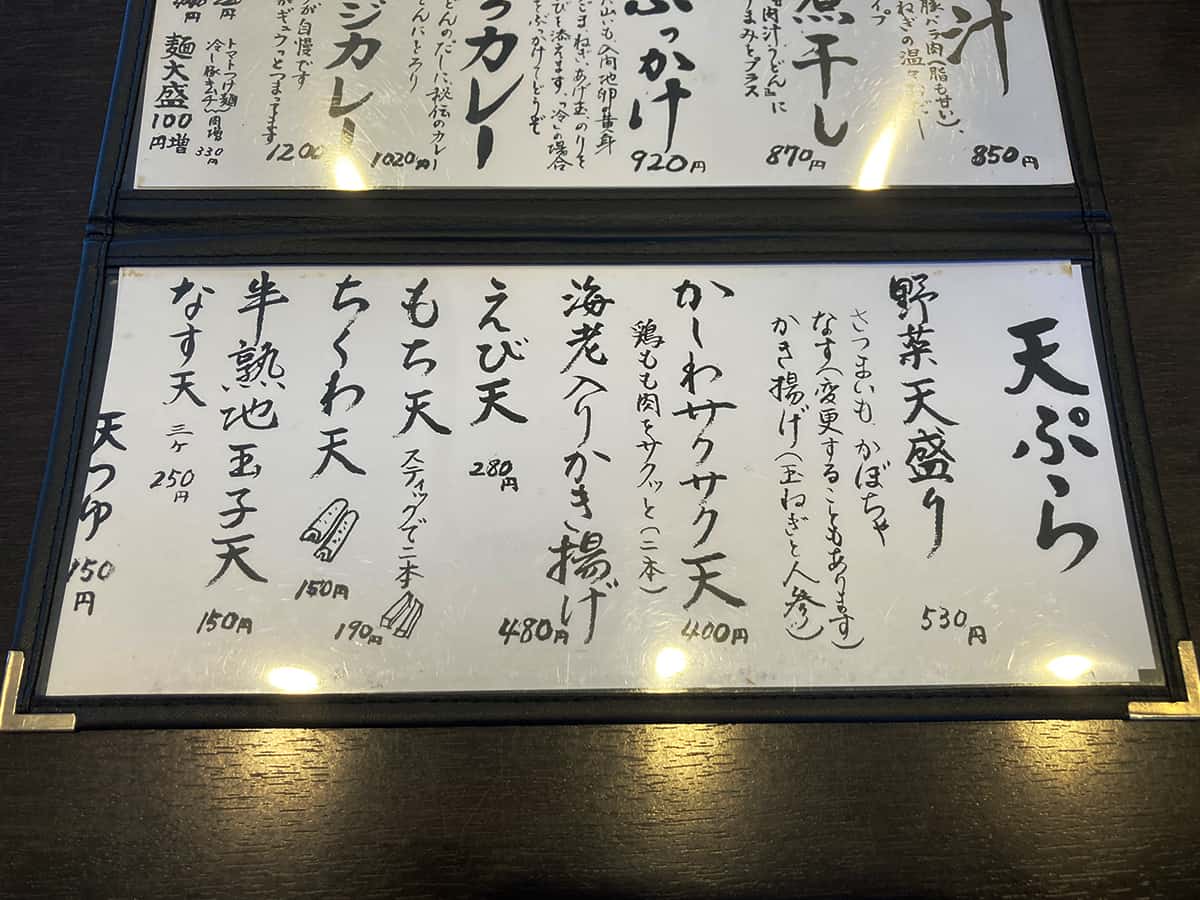 汁
豚バラ肉(脂も甘い)、
850円
煮干し
肉汁うどん』に
うまみとプラス
870円
ぶっかけ
920円
山いも入内地卵の黄身
ごまねぎあげ玉のりを
びを添えます。「冷」の場合
ぶっかけてどうぞ
カレー
どんのだしに秘伝のカレー
んにとろり
1020円
ジカレー
が自慢です
ギュウっとつまってます
1200
トマトつけ麺
冷し豚キムチ 肉増 330円
麺大盛100円増
天ぷら
野菜天盛り 530円
さつまいも かぼちゃ
なす(変更することもあります)
かき揚げ(玉ねぎと人参)
かしわサクサク天 400円
鶏もも肉をサクッと(二本)
海老入りかき揚げ 480円
えび天 280円
もち天 スティックで二本 190円
ちくわ天 150円
半熟地玉子天 150円
なす天 三ケ 250円
天つゆ 150円